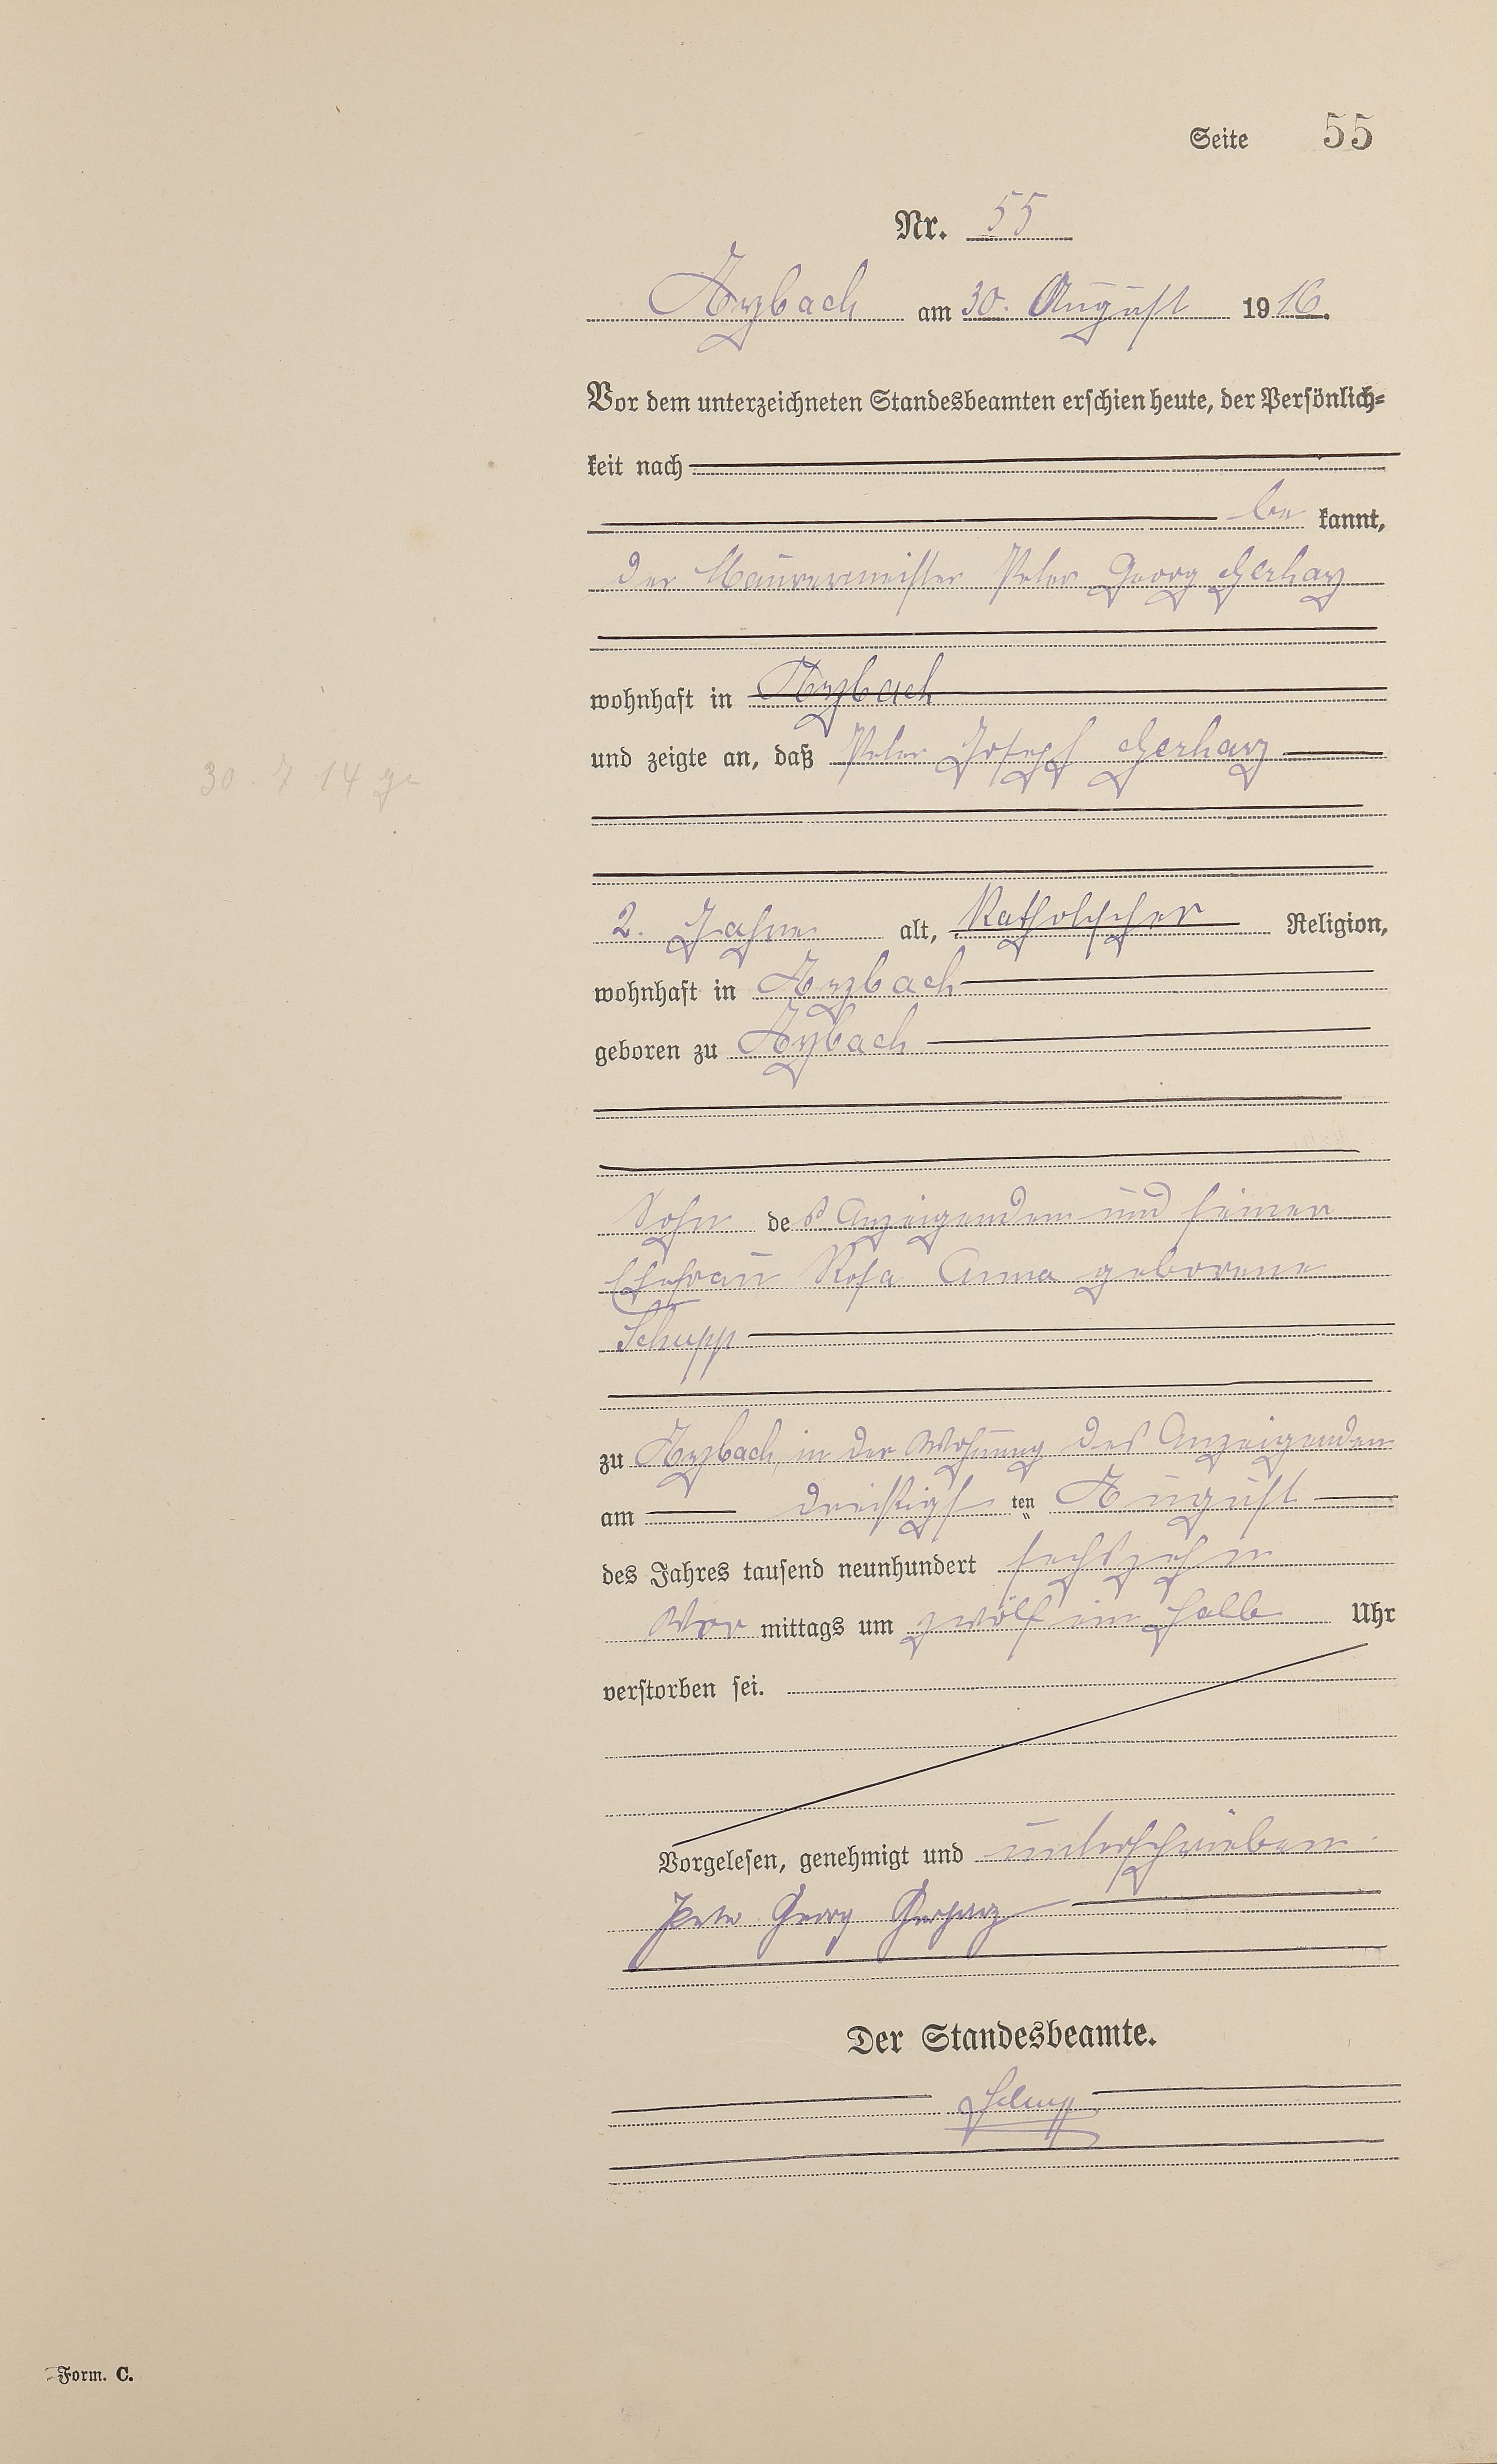 Seite 55
Nr. 55
Arzbach am 30. August 1916.
Vor dem unterzeichneten Standesbeamten erschien heute, der Persönlich=
keit nach
be kannt,
der Maurermeister Peter Georg Gerharz
wohnhaft in Arzbach
und zeigte an, daß Peter Joseph Gerharz
30. 7 14 ge
2. Jahre alt, Katholischer Religion,
wohnhaft in Arzbach
geboren zu Arzbach
Sohn des Anzeigenden und seiner
Ehefrau Rosa Anna geborene
Schupp
zu Arzbach, in der Wohnung des Anzeigenden
am dreißigsten August
des Jahres tausend neunhundert sechszehn
Vor mittags um zwölf ein halb Uhr
verstorben sei.
Vorgelesen, genehmigt und unterschrieben.
Peter Georg Gerharz
Der Standesbeamte.
Form. C.